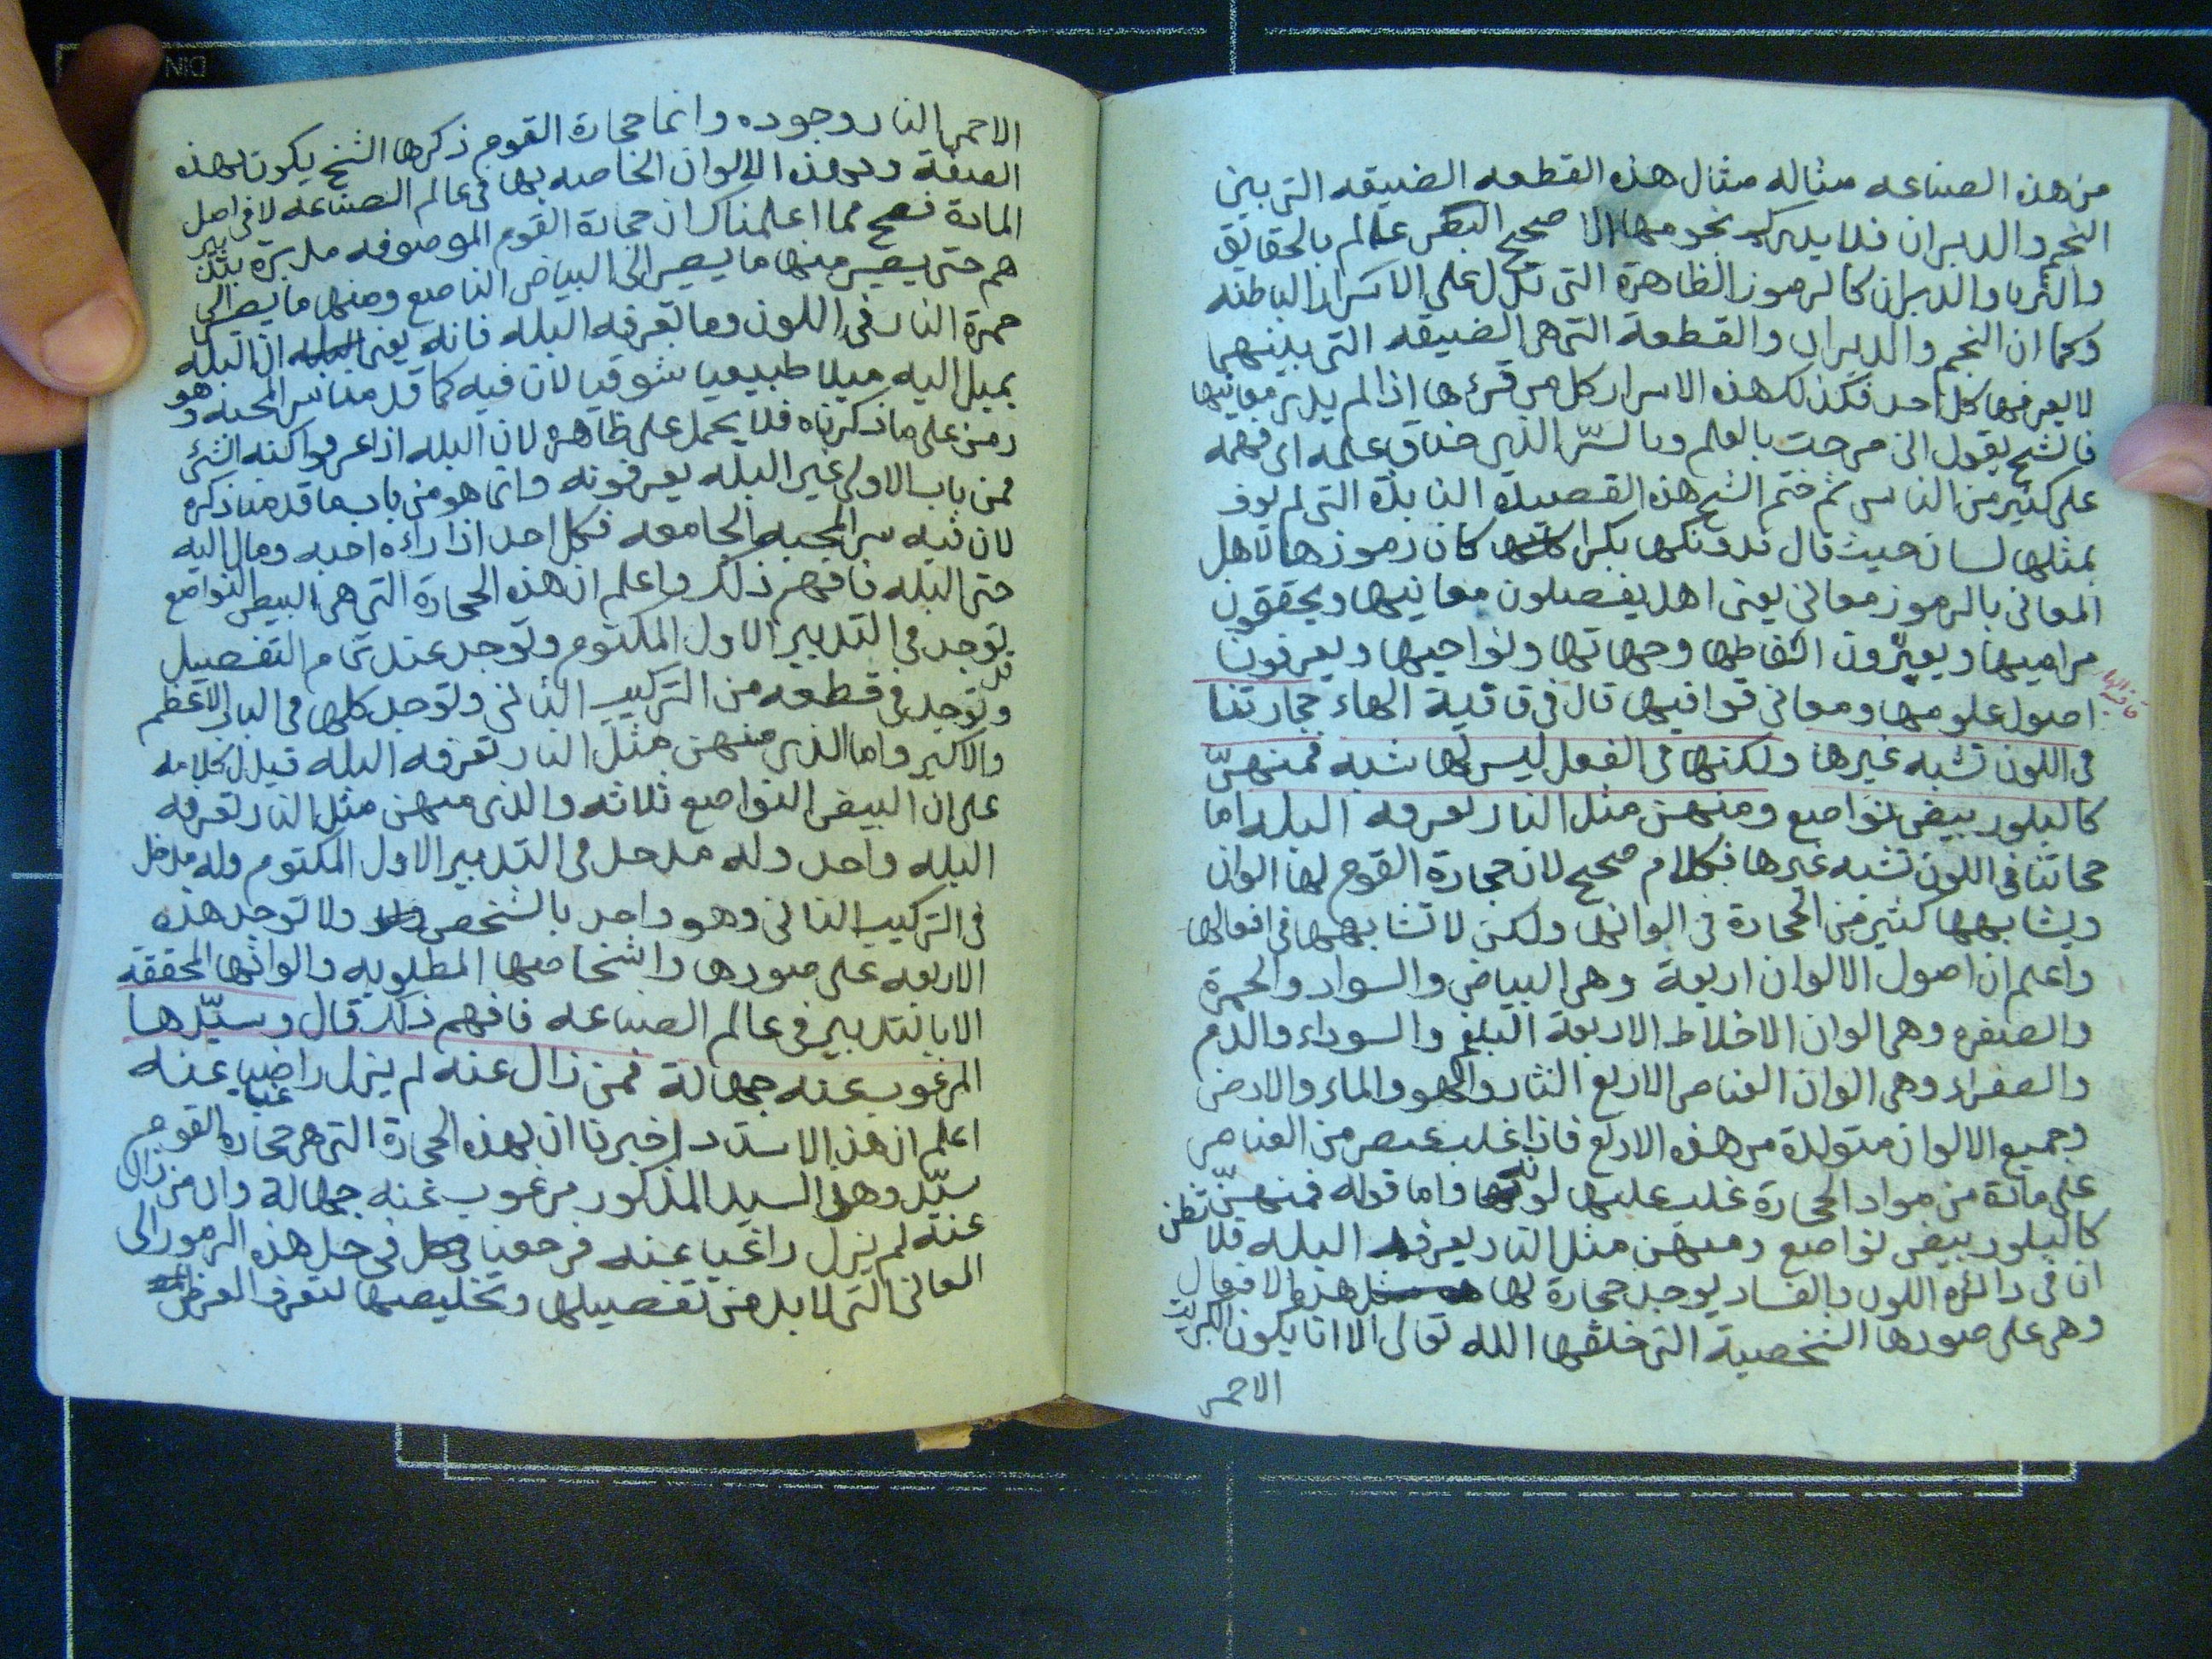 من هذه الصناعه مثاله مثال هذه القطعه الضيقه التى بين
النجم والدبران فلا يدرك نحومها الا صحيح البصر عالم بالحقايق
والثريا والدبران كالرموز الظاهرة التى تدل على الاسرار الباطنه
وكما ان النجم والدبران والقطعة التى هى الضيقه التى بينهما
لا يعرفها كل احد فكذلك هذه الاسرار كل من قرئها اذا لم يدر معانيها
فالشيخ يقول انى مرحت بالعلم وبالسّر الذى ضاق علمه اى فهمه
على كثير من الناس ثم ختم الشيخ هذه القصيدة التى لم
بمثلها لسان حيث قال فدونكها بكرا كان رموزها لاهل
المعانى بالرموز معانى يعنى اهل يفصلون معانيها ويحققون
مراميها ويعبّرون الفاظها وجهاتها ونواحيها ويعرفون
اصول علومها ومعانى قوافيها قال فى قافية الهاء حجارتنا
فى اللون تشبه غيرها ولكنها فى الفعل ليس لها شبه فمنهنّ
كالبلور بيض نواصع ومنهن مثل النار تعرفه البله اما
حجاتنا فى اللون تشبه غيرها فكلام صحيح لان حجارة القوم لها الوان
ويشابهها كثير من الحجارة فى الوانها ولكن لا تشابهها فى افعالها
واعلم ان اصول الالوان اربعة وهى البياض والسواد والحمرة
والصفره وهى الوان الاخلاط الاربعة البلغم والسوداء والدم
والصفراء وهى الوان العناصر الاربع النار والهوا والماء والارض
وجميع الالوان متولدة من هذه الاربع فاذا غلب عنصر من العناصر
على مادة من مواد الحجارة غلب عليها لونه واما قوله فمنهنّ
كالبلور بيض نواصع ومنهن مثل النار يعرفه البله فلا تظن
ان فى دائره اللون والفساد يوجد حجارة لها هذه الافعال
وهى على صورها الشخصية التى خلقها الله تعالى الا ان يكون الكبريت
الاحمر
الاحمر النار وجوده وانما حجارة القوم ذكرها الشيخ يكون بهذه
الصفة وبهذه الالوان الخاصه بها فى عالم الصناعه لا فى اصل
المادة فصح مما اعلمناك ان حجارة القوم الموصوفه مدبرة بتدبير
هم حتى يصير منها ما يصير الى البياض الناصع ومنها ما يصير الى
حمرة النار فى اللون وما تعرفه البله فانه يعنى ان البله
يميل اليه ميلا طبيعيا شوقيا لان فيه كما قدمنا سر المحبه وهو
رمز على ما ذكرناه فلا يحمل على ظاهره لان البله اذا عرفوا كنه الشئ
فمن باب الاولى غير البله يعرفونه وانما هو من باب ما قدمنا ذكره
لان فيه سر المحبه الجامعه فكل احد اذا راءه احبه ومال اليه
حتى البله فافهم ذلك واعلم ان هذه الحجارة التى هى البيض النواصع
قد توجد فى التدبير الاول المكتوم وتوجد عند تمام التفصيل
وتوجد فى قطعه من التركيب الثانى وتوجد كلها فى الباب الاعظم
والاكبر واما الذى منهن مثل النار تعرفه البله فيدل كلامه
على ان البيض النواصع ثلاثه والذى منهن مثل النار تعرفه
البله واحد وله مدخل فى التدبير الاول المكتوم وله مدخل
فى التركيب الثانى وهو واحد بالشخص ولا توجد هذه
الاربعه على صورها واشخاصها المطلوبه والوانها المحققه
الا بالتدبير فى عالم الصناعه فافهم ذلك قال وسيّدها
المرغوب عنه جهالة فمن زال عنه لم يزل راضيا عنه
اعلم ان هذا الاستاد اخبرنا ان لهذه الحجارة التى هى حجارة القوم
سيّد وهذا السيد المذكور مرغوب عنه جهالة وان من زال
عنه لم يزل راغبا عنه فرجعنا فى حل هذه الرموز الى
المعانى التى لا بد من تفصيلها وتخليصها لتعرف الغرض